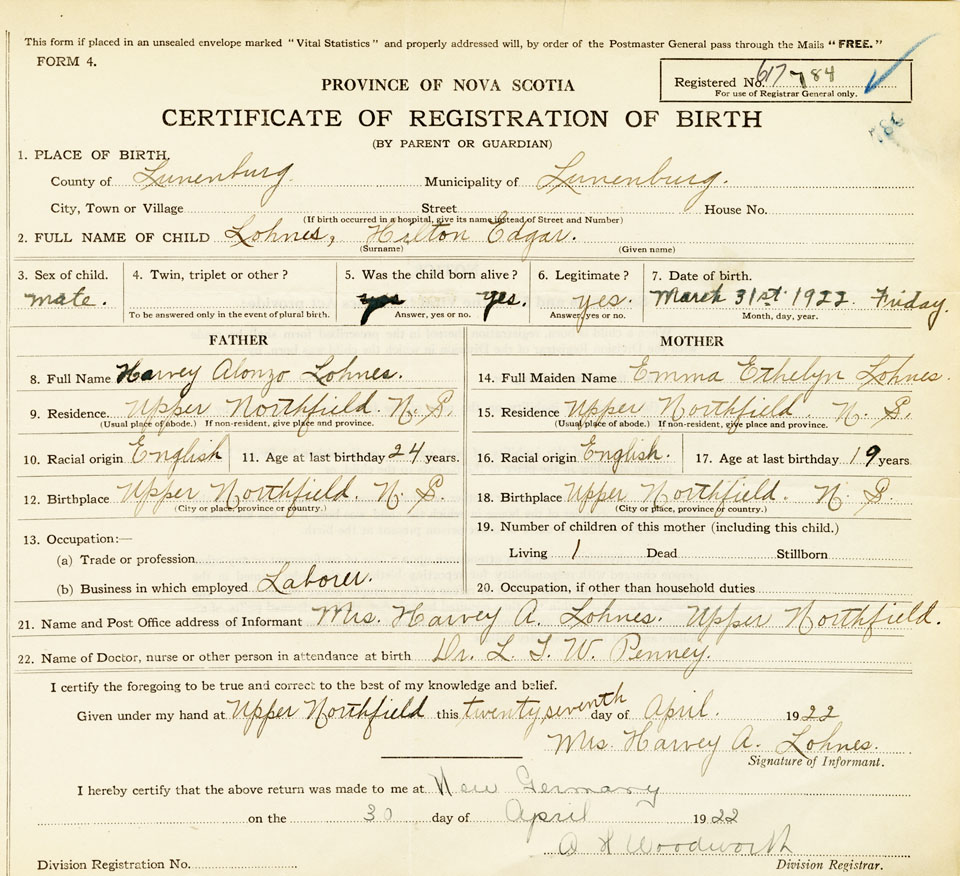 This form if placed in an unsealed envelope marked "Vital Statistics" and properly addressed will, by order of the Postmaster General pass through the Mails "FREE."
FORM 4.
Registered No. 617784
For use of Registrar General only.
PROVINCE OF NOVA SCOTIA
CERTIFICATE OF REGISTRATION OF BIRTH
784
(BY PARENT OR GUARDIAN)
1. PLACE OF BIRTH.
County of Lunenburg. Municipality of Lunenburg.
City, Town or Village Street House No.
(If birth occurred in a hospital, give its name instead of Street and Number)
2. FULL NAME OF CHILD Lohnes, Hilton Edgar.
(Surname) (Given name)
3. Sex of child. 4. Twin, triplet or other? 5. Was the child born alive? 6. Legitimate? 7. Date of birth.
male. yes yes. yes. March 31st 1922 Friday.
To be answered only in the event of plural birth. Answer, yes or no. Answer, yes or no. Month, day, year.
FATHER MOTHER
8. Full Name Harvey Alonzo Lohnes. 14. Full Maiden Name Emma Ethelyn Lohnes.
9. Residence. Upper Northfield. N. S. 15. Residence Upper Northfield. N. S.
(Usual place of abode.) If non-resident, give place and province. (Usual place of abode.) If non-resident, give place and province.
10. Racial origin English 11. Age at last birthday 24 years. 16. Racial origin English. 17. Age at last birthday 19 years
12. Birthplace Upper Northfield. N. S. 18. Birthplace Upper Northfield. N. S.
(City or place, province or country.) (City or place, province or country.)
13. Occupation:— 19. Number of children of this mother (including this child.)
(a) Trade or profession Living 1 Dead Stillborn
(b) Business in which employed Laborer. 20. Occupation, if other than household duties
21. Name and Post Office address of Informant Mrs. Harvey A. Lohnes. Upper Northfield.
22. Name of Doctor, nurse or other person in attendance at birth Dr. L. T. W. Penney.
I certify the foregoing to be true and correct to the best of my knowledge and belief.
Given under my hand at Upper Northfield this twenty seventh day of April. 1922
Mrs. Harvey A. Lohnes.
Signature of Informant.
I hereby certify that the above return was made to me at New Germany
on the 30 day of April 1922
A H Woodworth
Division Registration No. Division Registrar.